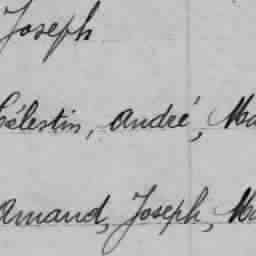 Joseph
Célestin, André, Ma
Amand, Joseph, Ma